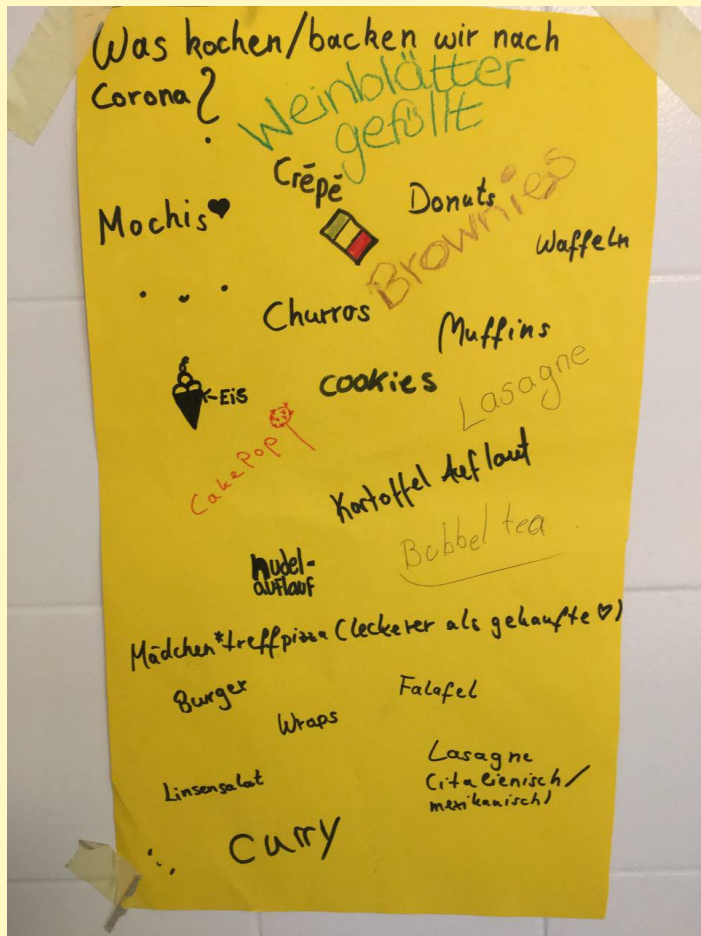 Was kochen/backen wir nach
Corona?
Weinblätter
gefüllt
Crêpé
Donuts
Mochis♥
Brownies
Waffeln
Churros
Muffins
←Eis
cookies
Lasagne
CakePop
Kartoffel Auflauf
Bubbel tea
nudel-
auflauf
Mädchen*treffpizza (leckerer als gekaufte ♡)
Burger
Falafel
Wraps
Lasagne
(italienisch/
mexikanisch)
Linsensalat
Curry